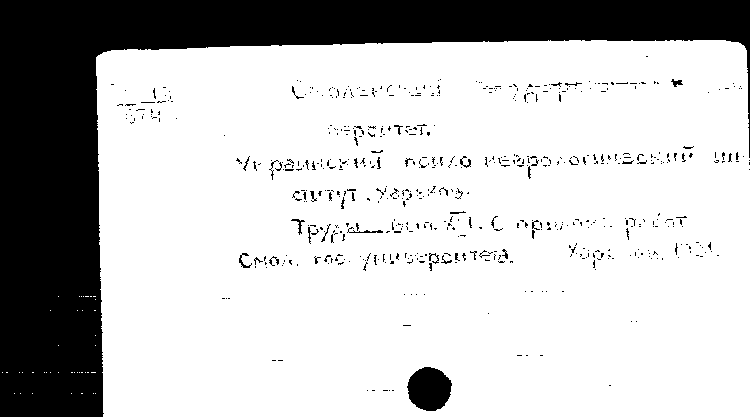 13
674
Смоленский
верситет.
Украинский психо неврологический ин
ститут. Харьков.
Труды вып. XII. С прилож. работ
Смол. гос. университета. Харьков, 1931.